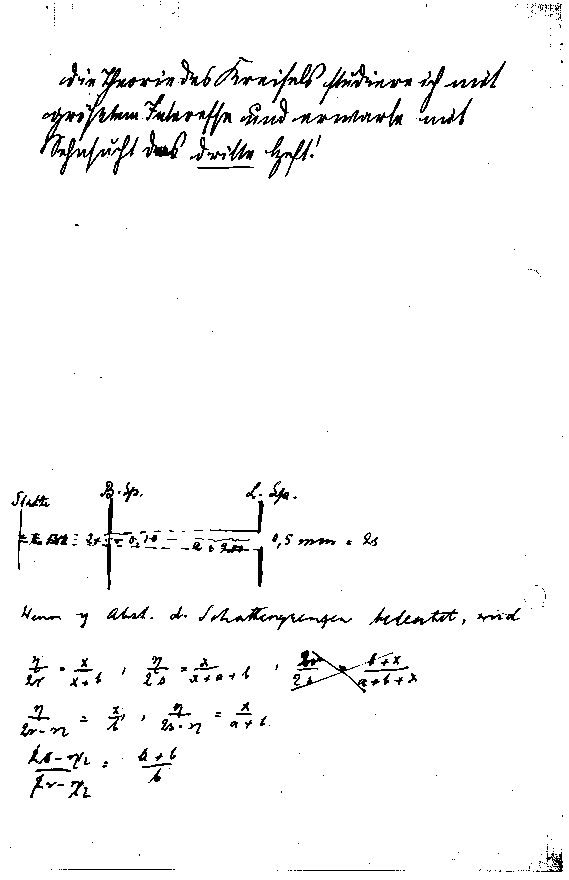 die Theorie des Kreisels studiere ich mit
größtem Interesse und erwarte mit
Sehnsucht das dritte Heft!
Platte B. Sp. L. Spa.
a = 200 0,5 mm = 2s
Wenn η Abst. d. Schattengrenzen bedeutet, wird
η/2r = x/(x+b) , η/2s = x/(x+a+b) , 2r/2s = (b+x)/(a+b+x)
η/(2r-η) = x/b , η/(2s-η) = x/(a+b)
(2s-η)/(2r-η) = (a+b)/b